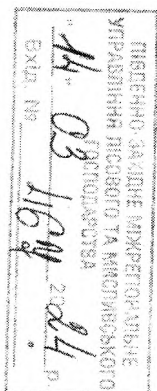 ПІВДЕННО-ЗАХІДНЕ МІЖРЕГІОНАЛЬНЕ
УПРАВЛІННЯ ЛІСОВОГО ТА МИСЛИВСЬКОГО
ГОСПОДАРСТВА
"14" 03 2024 р.
Вхід. №